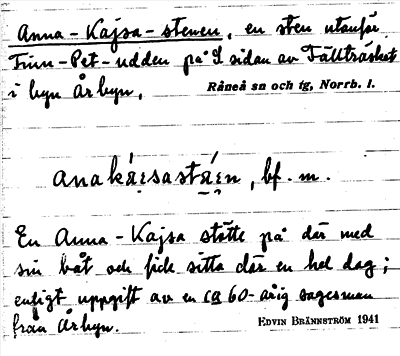 Anna-Kajsa-stenen, en sten utanför
Finn-Pet-udden på S sidan av Fällträsket
i byn Årbyn.
Råneå sn och tg, Norrb. l.
bf. m.
En Anna-Kajsa stötte på där med
sin båt och fick sitta där en hel dag;
enligt uppgift av en ca 60-årig sagesman
från Årbyn.
EDVIN BRÄNNSTRÖM 1941